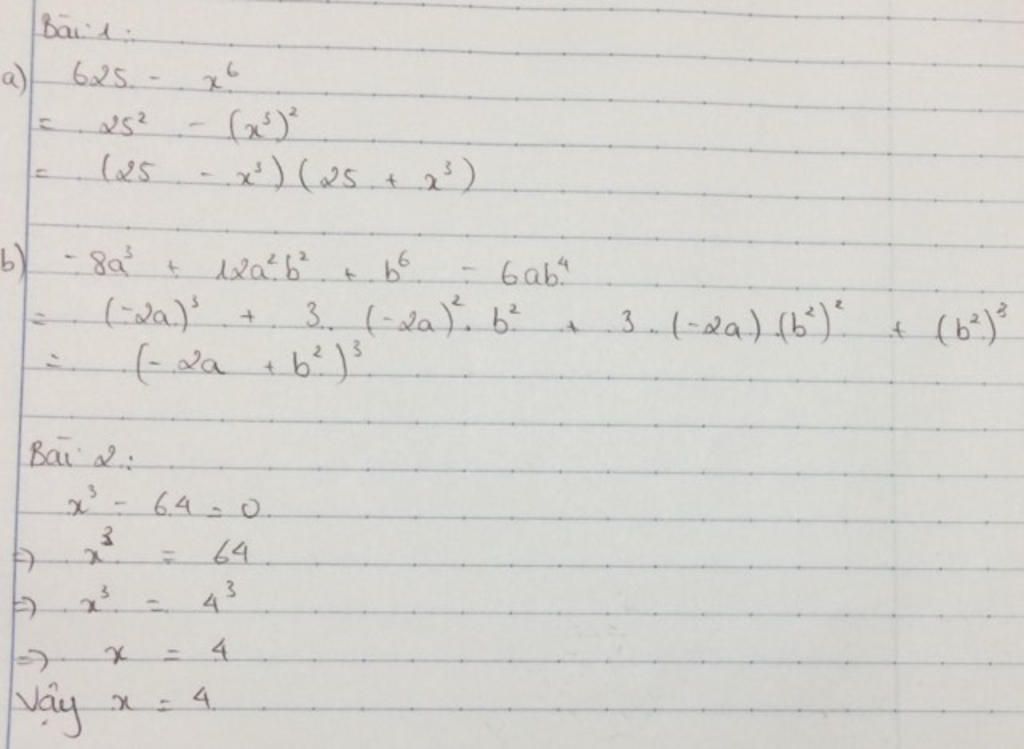 Bài 1:
a) 625 - x⁶
= 25² - (x³)²
= (25 - x³)(25 + x³)
b) -8a³ + 12a².b² + b⁶ - 6ab⁴
= (-2a)³ + 3.(-2a)².b² + 3.(-2a).(b²)² + (b²)³
= (-2a + b²)³
Bài 2:
x³ - 64 = 0
=> x³ = 64
=> x³ = 4³
=> x = 4
Vậy x = 4